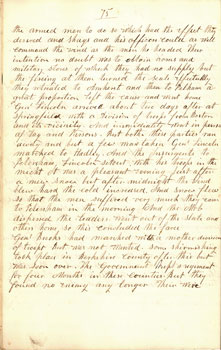 75
the armed men to do so which had the effect they
desired and Shays and his officers could as well
command the wind as the men he headed. Their
intention no doubt was to obtain arms and
military stores of which they had no supply but
the firing at them turned the scale effectually
they retreated to and then to Pelham a
great proportion left the cause and went home
Gen Lincoln arrived about two days after at
Springfield with a division of troops from Boston
and the vicinity who immediately went in pursuit
of Day and Parsons. But both their parties ran
away and but a few was taken Gen Lincoln
marched to Hadley. And the insurgents to
Petersham, Lincoln set out with his troops in the
night it was a pleasant evening just after
a snow but after midnight the wind
blew hard the cold increased, and snow flew
so that the men suffered very much they came
to Petersham in the morning and the Mob
dispersed the leaders went out of the state and
others home, so this concluded the farce
Gen had marched with a division
of troops but was not wanted. some skirmishing
took place in Berkshire County after this but
was soon over. The Government kept a regiment
for four Months in these Counties but they
found no enemy any longer. There were